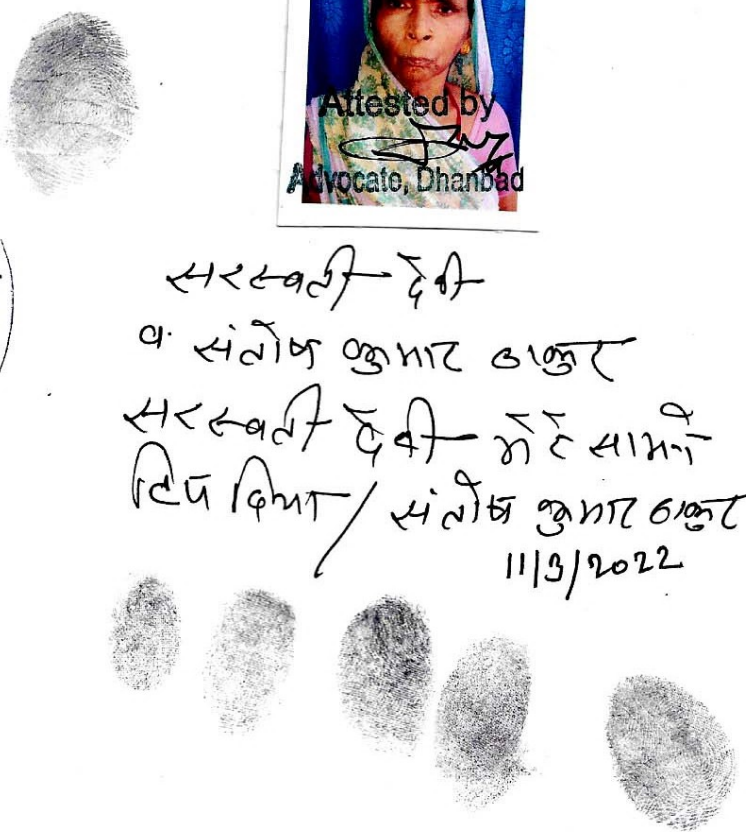 Attested by
Advocate, Dhanbad
सरस्वती देवी
व. संतोष कुमार ठाकुर
सरस्वती देवी मेरे सामने
टिप दिया / संतोष कुमार ठाकुर
11/3/2022